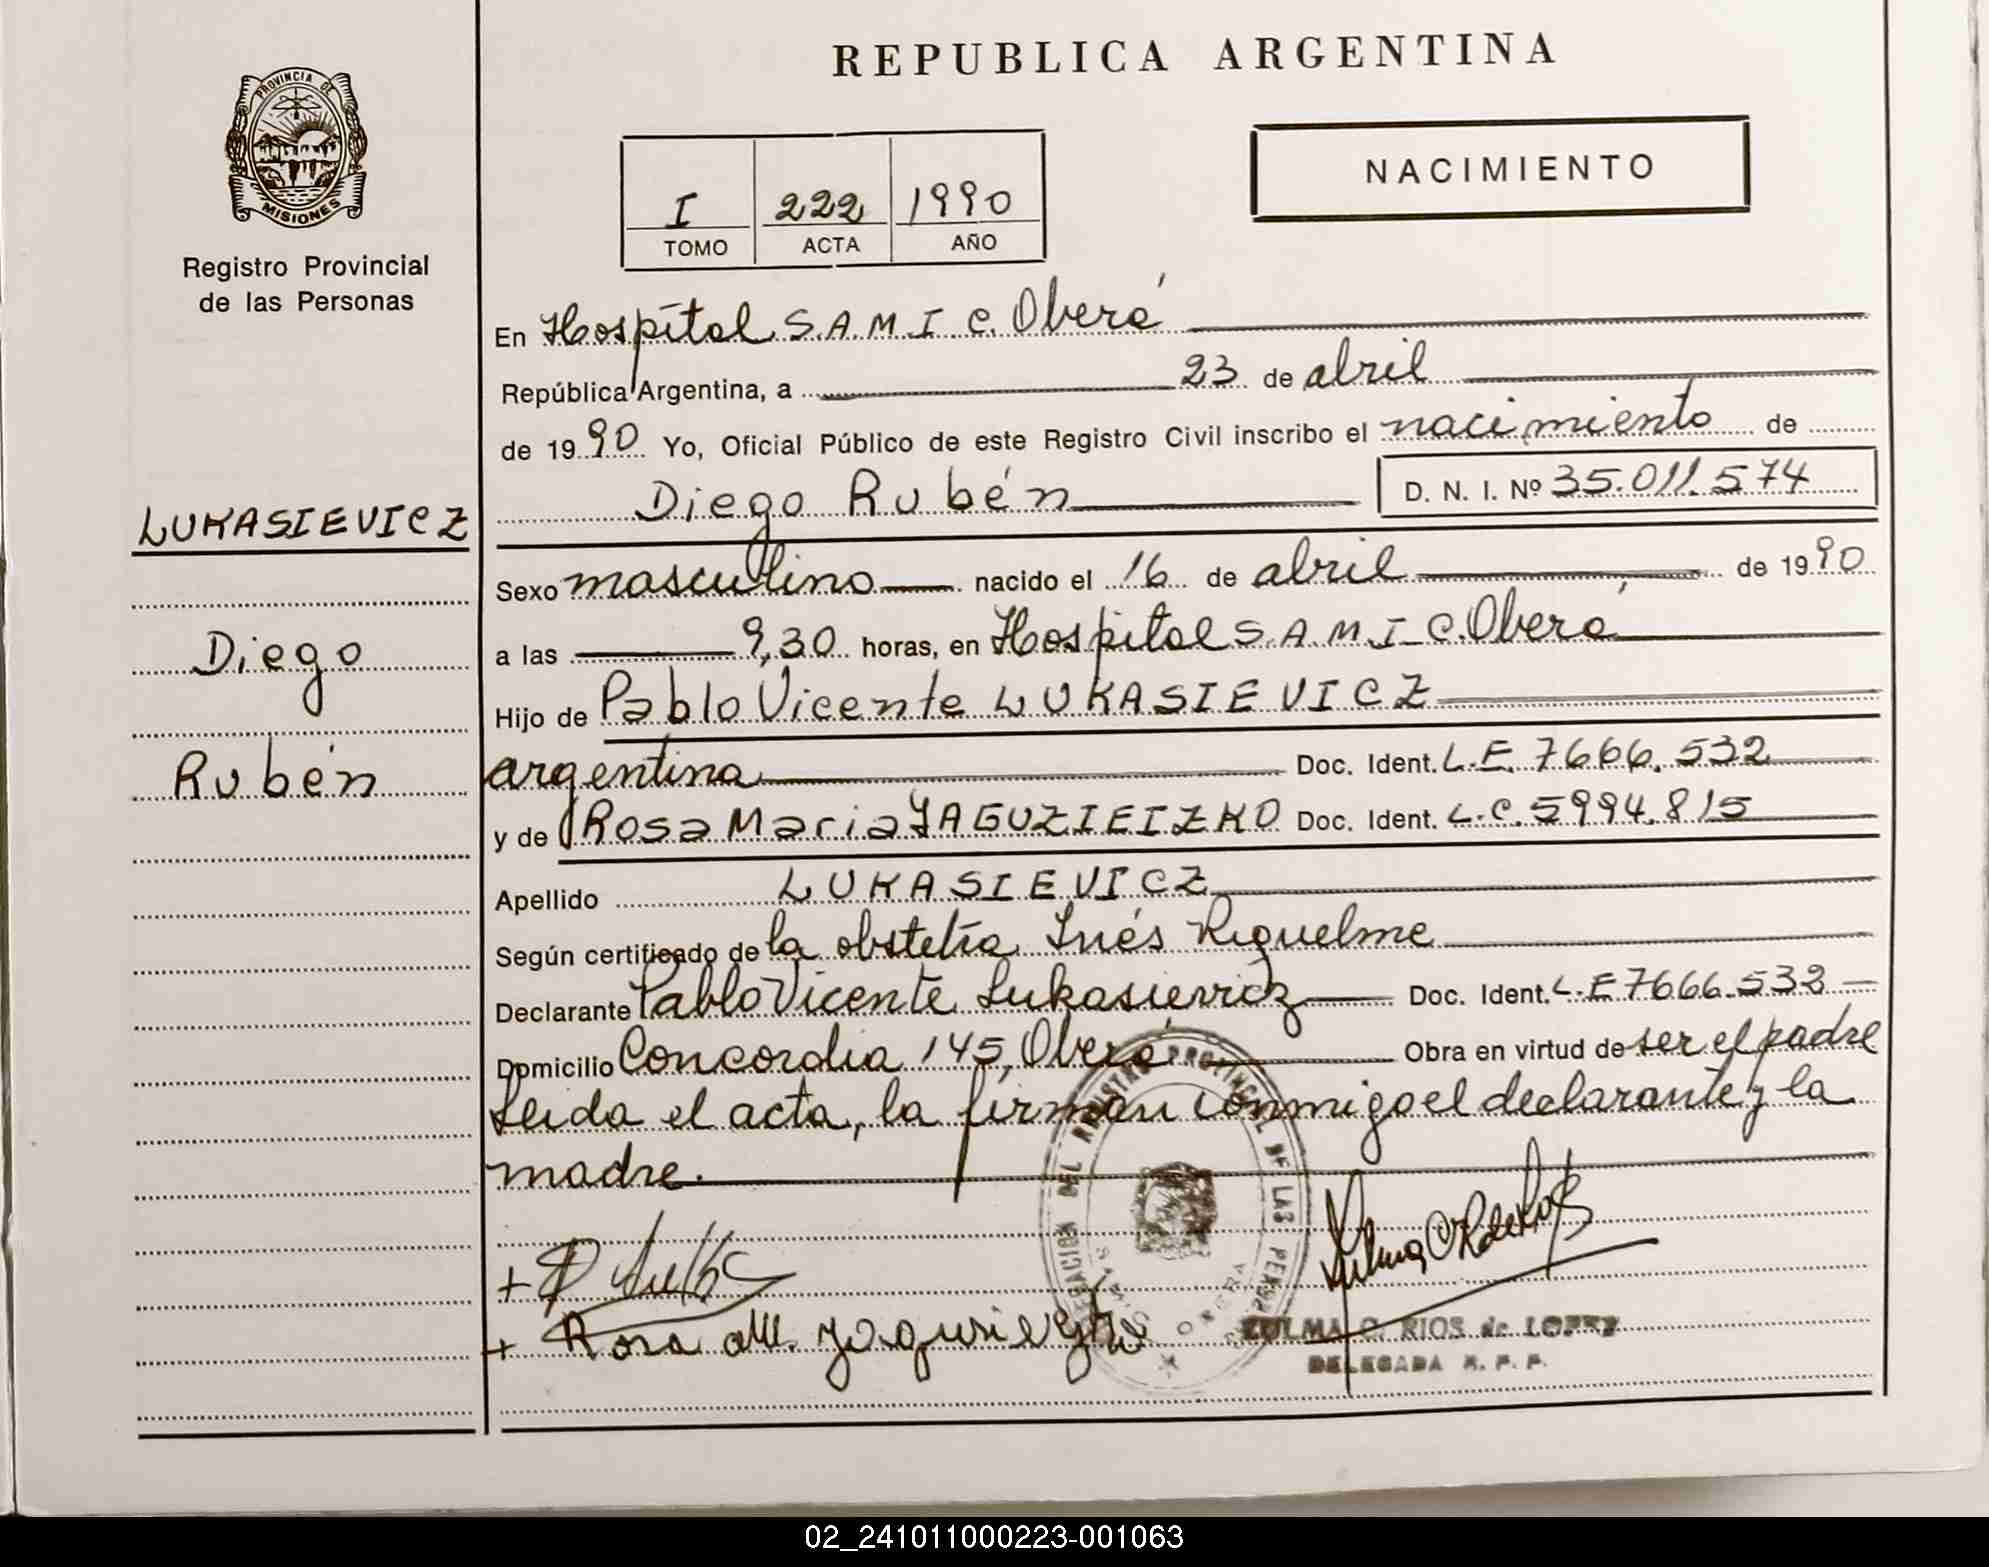 REPUBLICA ARGENTINA
PROVINCIA DE
MISIONES
Registro Provincial
de las Personas
NACIMIENTO
I 222 1990
TOMO ACTA AÑO
En Hospital S.A.M.I.C. Oberá
República Argentina, a 23 de abril
de 1990 Yo, Oficial Público de este Registro Civil inscribo el nacimiento de
Diego Rubén D. N. I. Nº 35.011.574
LUKASIEVICZ
Diego
Rubén
Sexo masculino nacido el 16 de abril de 1990
a las 9,30 horas, en Hospital S.A.M.I.C. Oberá
Hijo de Pablo Vicente LUKASIEVICZ
argentina Doc. Ident. L.E. 7666.532
y de Rosa Maria JAGUZIEIZKO Doc. Ident. L.C. 5994.815
Apellido LUKASIEVICZ
Según certificado de la obstetra Inés Riquelme
Declarante Pablo Vicente Lukasievicz Doc. Ident. L.E 7666.532
Domicilio Concordia 145, Oberá Obra en virtud de ser el padre
Leida el acta, la firman conmigo el declarante y la
madre.
DELEGACION DEL REGISTRO PROVINCIAL DE LAS PERS
OBERA
+ Rosa M.
ZULMA C. RIOS de LOPEZ
DELEGADA R. P. P.
02_241011000223-001063